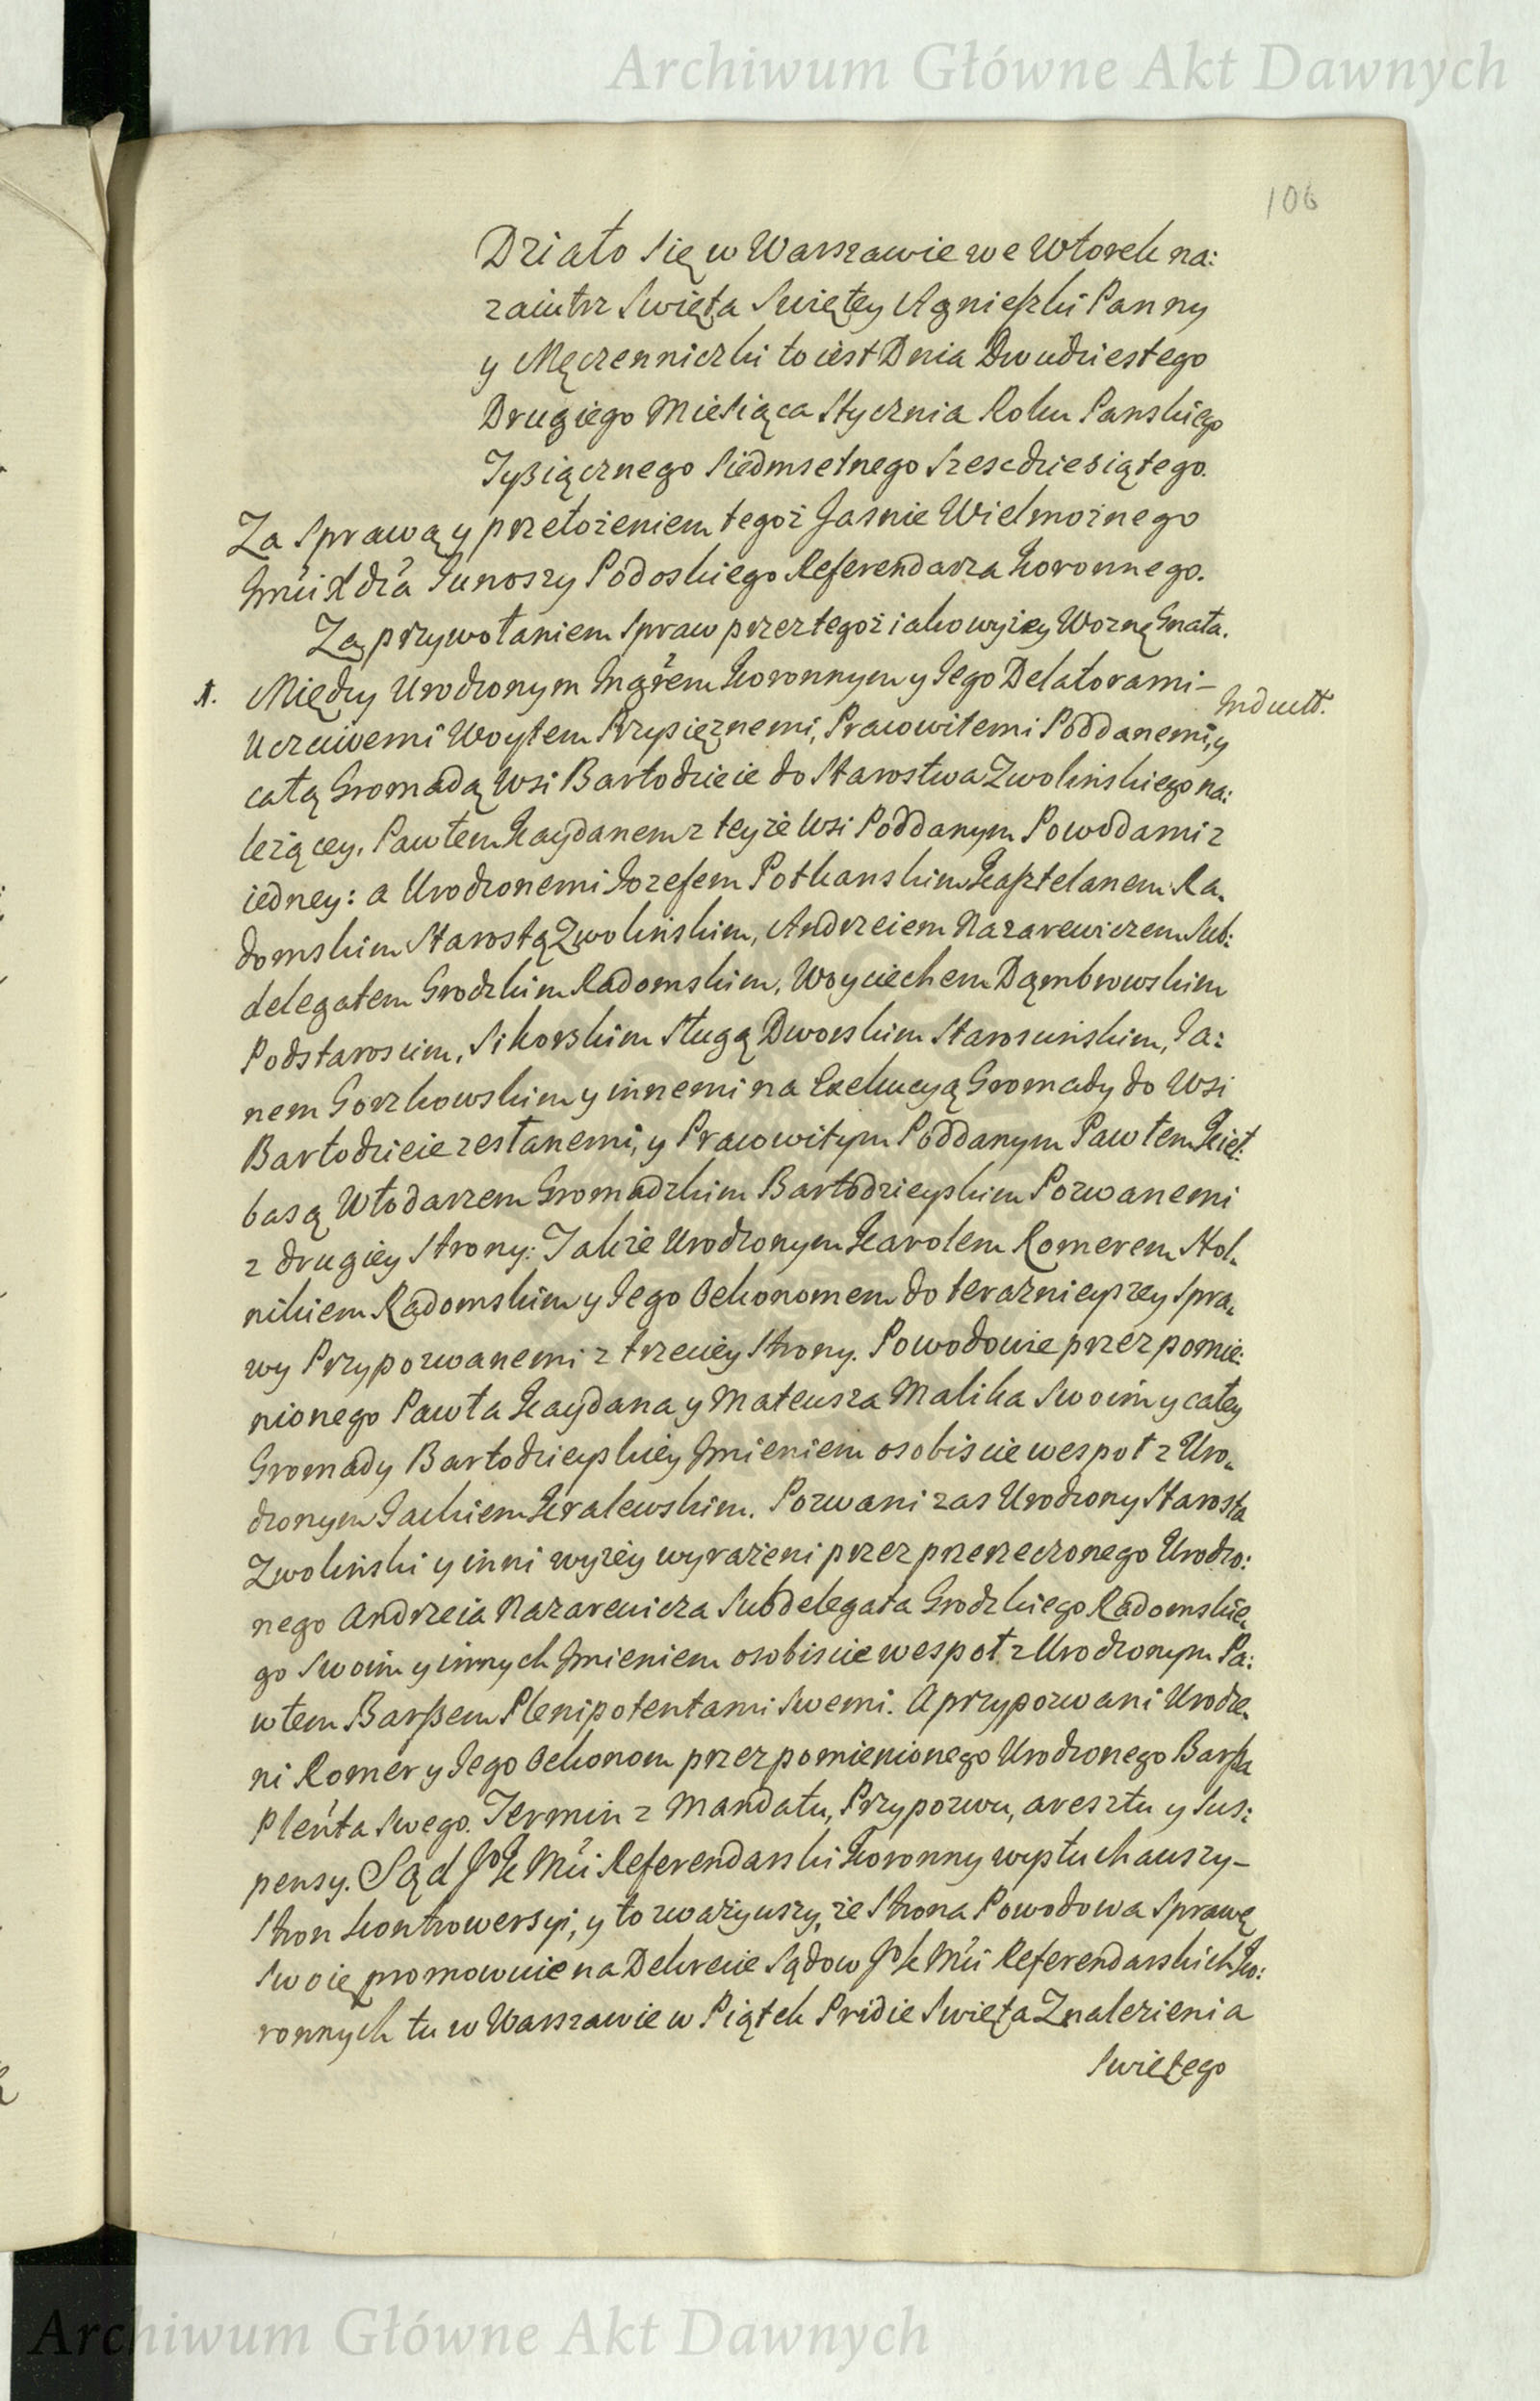 Archiwum Główne Akt Dawnych
106
Działo się w Warszawie we Wtorek na:
zaiutrz Swięta Swiętey Agnieszki Panny
y Męczenniczki to iest Dnia Dwudziestego
Drugiego Miesiąca Stycznia Roku Panskiego
Tysiącznego Siedmsetnego Szescdziesiątego.
Za Sprawą y przełożeniem tegoż Jasnie Wielmożnego
Junoszy Podoskiego Referendarza Koronnego.
Za przywołaniem Spraw przez tegoż iako wyżey Woznę Gnata.
1. Między Urodzonym Ingrem Koronnym y Jego Delatorami–
Indult.
Uczciwemi Woytem Przysięznemi, Pracowitemi Poddanemi, y
całą Gromadą Wsi Bartodzieie do Starostwa Zwolinskiego na:
leżącey, Pawłem Kaydanem z teyże Wsi Poddanym Powodami z
iedney: a Urodzonemi Jozefem Potkanskim Kasztelanem Ra„
domskim Starostą Zwolińskim, Andrzeiem Nazarewiczem Sub:
delegatem Grodzkim Radomskim, Woyciechem Dąmbrowskim
Podstaroscim, Sikorskim Sługą Dworskim Staroscińskim, Ja:
nem Gorzkowskim y innemi na Exekucyą Gromady do Wsi
Bartodzieie zesłanemi, y Pracowitym Poddanym Pawłem Kieł:
basą Włodarzem Gromadzkim Bartodzieyskim Pozwanemi
z drugiey Strony: Takze Urodzonym Karolem Romerem Stol„
nikiem Radomskim y Jego Oekonomem do terazniejszey Spra„
wy Przypozwanemi z trzeciey Strony. Powodowie przez pomie:
nionego Pawła Kaydana y Mateusza Malika Swoim y całey
Gromady Bartodzieyskiey Imieniem osobiscie wespoł z Uro„
dzonym Jackiem Kralewskim. Pozwani zas Urodzony Starosta
Zwoliński y inni wyżey wyrażeni przez przerzeczonego Urodzo:
nego Andrzeia Nazarewicza Subdelegata Grodzkiego Radomskie„
go Swoim y innych Imieniem osobiscie wespoł z Urodzonym Pa:
włem Barszem Plenipotentami Swemi. A przypozwani Urodze„
ni Romer y Jego Oekonom przez pomienionego Urodzonego Barsza
Pleńta Swego. Termin z Mandatu, Przypozwu, aresztu y Sus:
pensy. Sąd JoK Mći Referendarski Koronny wysłuchawszy–
Stron kontrowersyi, y to zważywszy, że Strona Powodowa Sprawę
Swoię promowuie na Dekrecie Sądow JoK Mći Referendarskich Ko:
ronnych tu w Warszawie w Piątek Pridie Swięta Znalezienia
Swiętego
Archiwum Główne Akt Dawnych